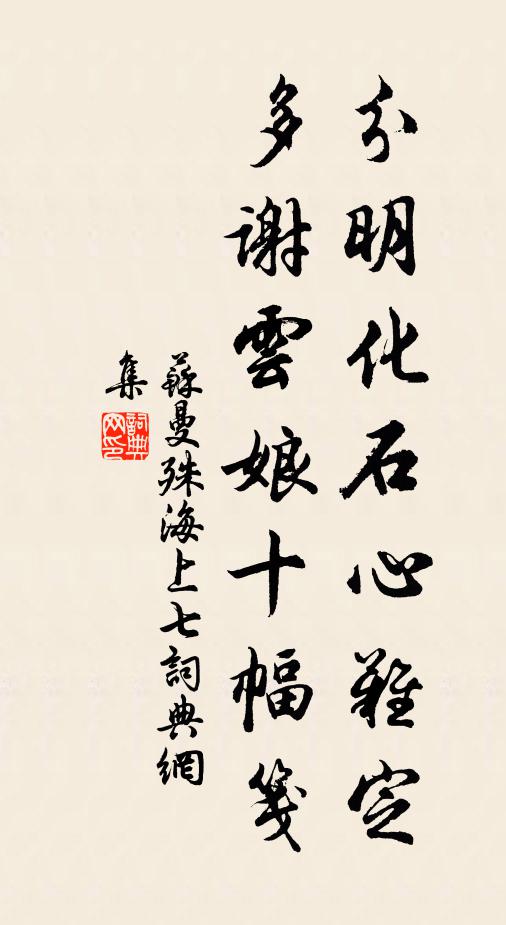 分明化石心難定
多謝雲娘十幅箋
蘇曼殊海上七詞典網
集
詞典網印